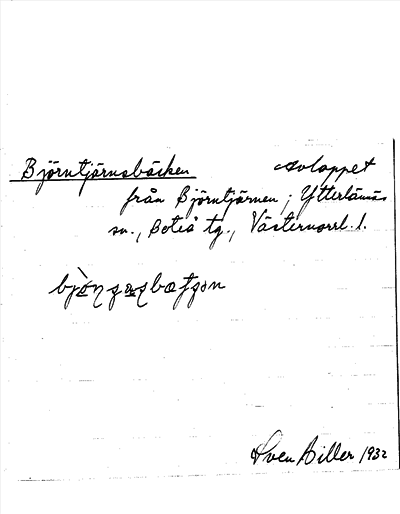 Björntjärnsbäcken avloppet
från Björntjärnen, Ytterlännäs
sn., Boteå tg., Västernorrl. l.
Sven Hiller 1932